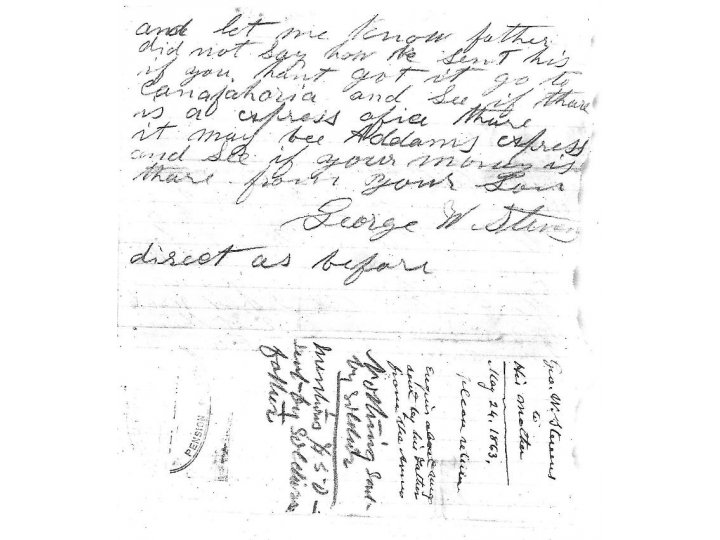 and let me know father
did not say how he sent his
if you haint got it go to
Canajahoria and See if thare
is a express ofice thare
it may bee Addams express
and See if your money is
thare from your Son
George W. Stevens
direct as before
Geo. W. Stevens
to
His Mother
May 24, 1863,
please return
Enquire about
sent by his father
from the Army
Nothing sent
by Soldier
Mentions $50
sent by Soldiers
father
PENSION